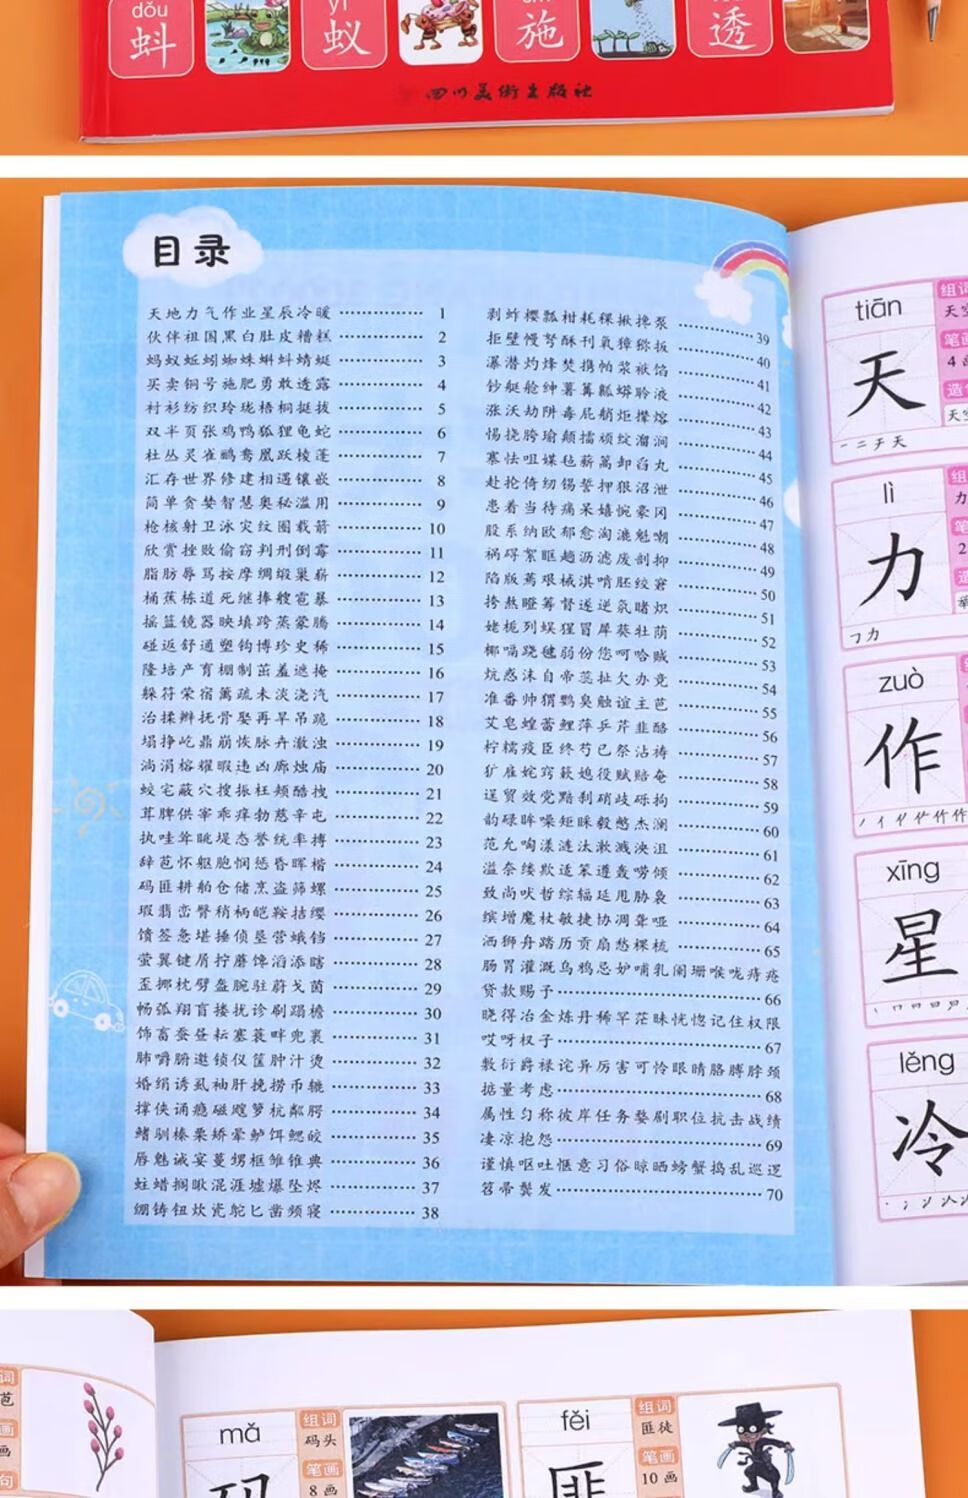 dǒu
蚪
yǐ
蚁
施
透
四川美术出版社
目录
天地力气作业星辰冷暖 1
伙伴祖国黑白肚皮糟糕 2
蚂蚁蚯蚓蜘蛛蝌蚪蜻蜓 3
买卖铜号施肥勇敢透露 4
衬衫纺织玲珑梧桐挺拔 5
双半页张鸡鸭狐狸龟蛇 6
杜丛灵雀鹂鸯凰跃棱蓬 7
汇存世界修建相遇镶嵌 8
简单贪婪智慧奥秘滥用 9
枪核射卫泳灾纹圈载箭 10
欣赏挫败偷窃判刑倒霉 11
脂肪辱骂按摩绸缎巢崭 12
桶蕉栋道死继捧艘雹暴 13
摇篮镜器映填跨蒸蒙腾 14
碰返舒通塑钩博珍史稀 15
隆培产育棚制茁羞遮掩 16
躲符荣宿篱疏未淡浇汽 17
治揉辫抚骨娶再旱吊跪 18
塌挣屹鼎崩恢脉卉澈浊 19
淌涓榕耀暇违凶廊烛庙 20
蛟宅蔽穴搜振枉颊酷拽 21
茸脾供宰乖痒勃慈辛屯 22
执哇耸眺堤态誉统率搏 23
辞芭怀躯胞悯惩昏晖楷 24
码匪耕舶仓储烹盗筛螺 25
瑕翡峦臀稍柄皑鞍拮缨 26
馈签急堪捶侦垦营蛾铛 27
萤翼键屑拧蘑馋滔添瞎 28
歪挪枕劈盔腕驻蔚戈茵 29
畅弧翔盲搂扰诊刷蹋檐 30
饰畜蚕昼耘塞蓑畔兜裹 31
肺嚼腑遨锁仪筐肿汁烫 32
婚绢诱虱袖肝挽捞币辘 33
撑侠诵瘾磁飕箩杭粼腭 34
鳍驯榛栗矫晕鲈饵鳃皎 35
唇魅诫宴蔓甥框雏锥典 36
蛀蜡搁瞅混涯墟爆坠烬 37
绷铸钮炊瓷鸵匕凿频寝 38
剥蚱樱瓢柑耗稞揪搀泵 39
拒壁慢弩酥刊氧獐称扳 40
瀑潜灼烽焚携帕浆袱馅 41
钞艇舱绅薯篝瓤蟒聆液 42
涨沃劫阱毒屁艄炬撵熔 43
惕挠胯瑜颠擂顽绽溜涧 44
寨怯咀媒毡蕲篙卸舀丸 45
赴抡倚纫锡誓押狠沼泄 46
患着当待痛呆嬉惋豪冈 47
股系纳欧郁愈淘漉魁嘲 48
祸碍絮眶趟沥滤废剖抑 49
陷版蔫艰械淇啃胚绞窘 50
挎熬瞪筹督遂逆氛睹炽 51
姥栀列蜈猩冒犀葵牡荫 52
椰嗝跷毽弱份您呵哈贼 53
炕惑沫自帝蕊扯欠办竞 54
准番帅猬鹦臭触谊主芭 55
艾皂蝗蕾鲤萍乒芹韭酪 56
柠糯疫臣终芍已祭沾祷 57
犷雇姹窍簌媳役赋赔奄 58
逞贸效党黯刹硝歧砾拘 59
韵碌眸噪矩眯毅憋杰澜 60
范允啕漾涟汰漱溅泱沮 61
溢奈缕欺适笨遵轰唠倾 62
致尚吠哲综辐延甩胁袅 63
缤增魔杖敏捷协凋聋哑 64
洒狮舟踏历贡扇愁棵梳 65
肠胃灌溉乌鸦忌妒哺乳阑珊喉咙痔疮
贷款赐子 66
晓得冶金炼丹稀罕茫昧恍惚记住权限
哎呀杈子 67
敷衍爵禄诧异厉害可怜眼睛胳膊脖颈
掂量考虑 68
属性匀称彼岸任务婺剧职位抗击战绩
凄凉抱怨 69
谨慎呕吐惬意习俗晾晒螃蟹捣乱巡逻
笤帚鬓发 70
tiān
天
组词
天空
笔画
4画
造句
lì
力
zuò
作
xīng
星
lěng
冷
mǎ
码
组词
码头
笔画
8画
fěi
匪
组词
匪徒
笔画
10画